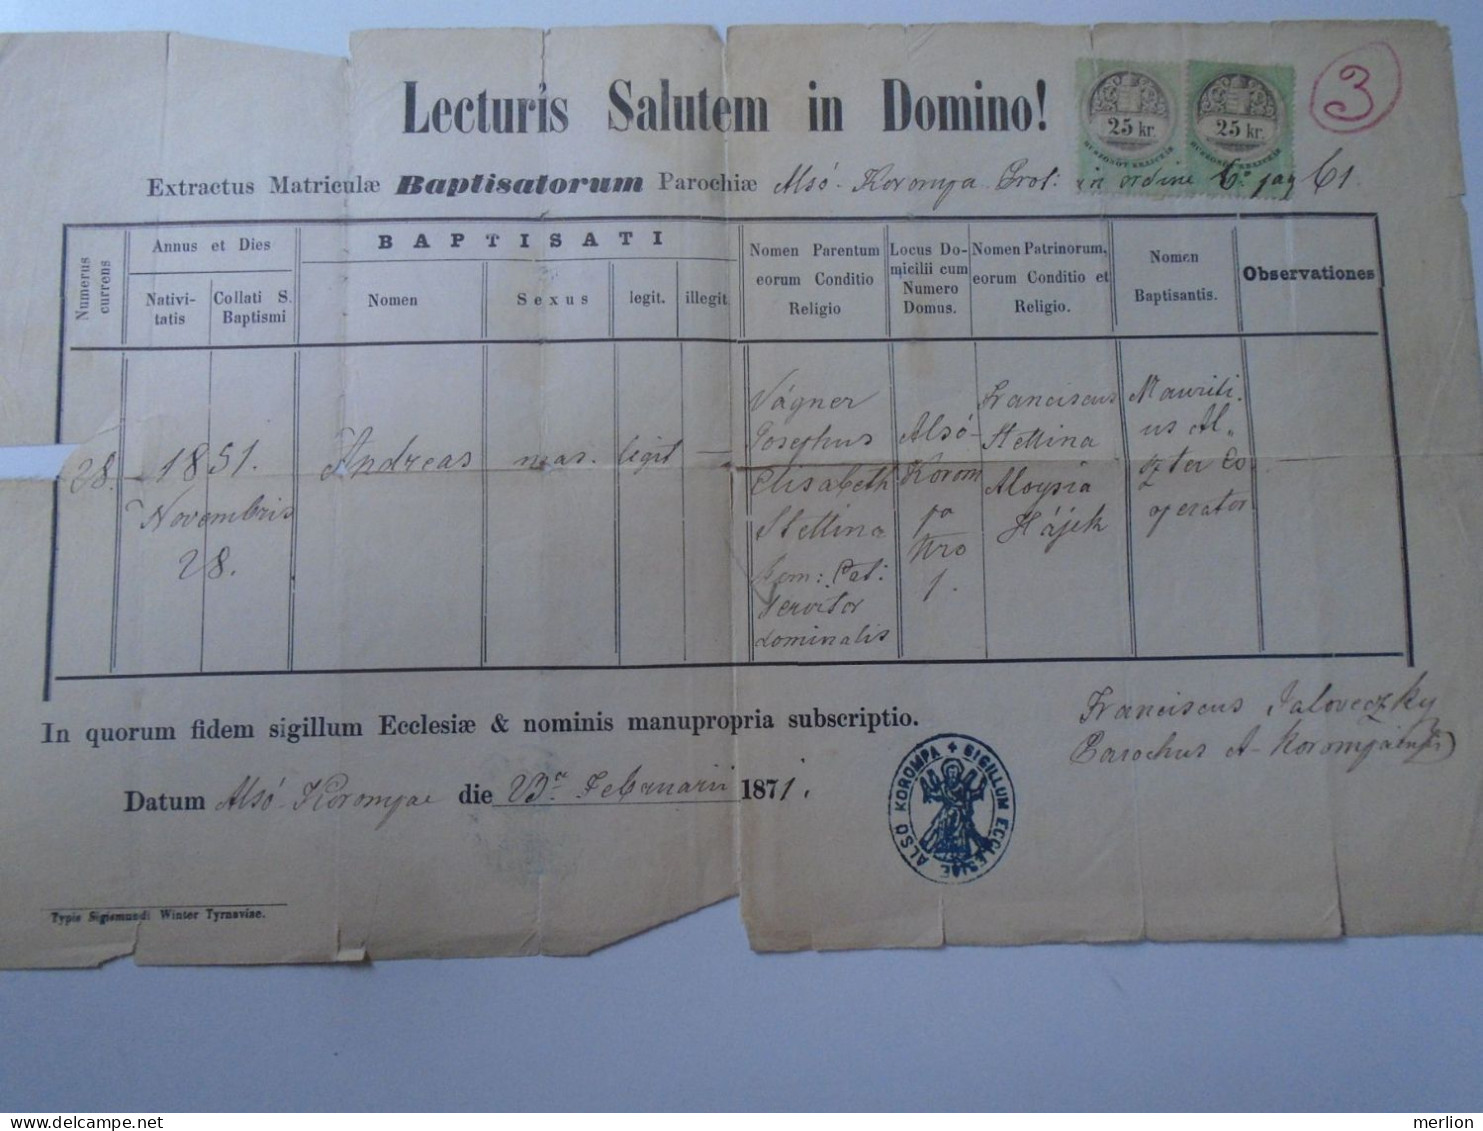 Lecturis Salutem in Domino!
25 kr.
25 kr.
3
Extractus Matriculæ Baptisatorum Parochiæ Alsó-Korompa Prot: in ordine 6° pag 61.
Numerus currens
Annus et Dies
Nativitatis
Collati S. Baptismi
BAPTISATI
Nomen
Sexus
legit.
illegit.
Nomen Parentum
eorum Conditio
Religio
Locus Do-
micilii cum
Numero
Domus.
Nomen Patrinorum,
eorum Conditio et
Religio.
Nomen
Baptisantis.
Observationes
28.
1851.
Novembris
28.
Andreas
mas.
legit
—
Vágner
Josephus
Elisabeth
Stellina
Rom: Cat:
Servitor
dominalis
Alsó-
Korom
pa
Nro
1.
Franciscus
Stellina
Aloysia
Hájek
Mauriti-
us Al-
szter Co
operator
In quorum fidem sigillum Ecclesiæ & nominis manupropria subscriptio.
Datum Alsó-Korompae die 23a Februarii 1871.
Franciscus Jaloveczky
Parochus A-Korompai
SIGILLUM ECCLESIAE ALSO KOROMPA
Typis Sigismundi Winter Tyrnaviae.